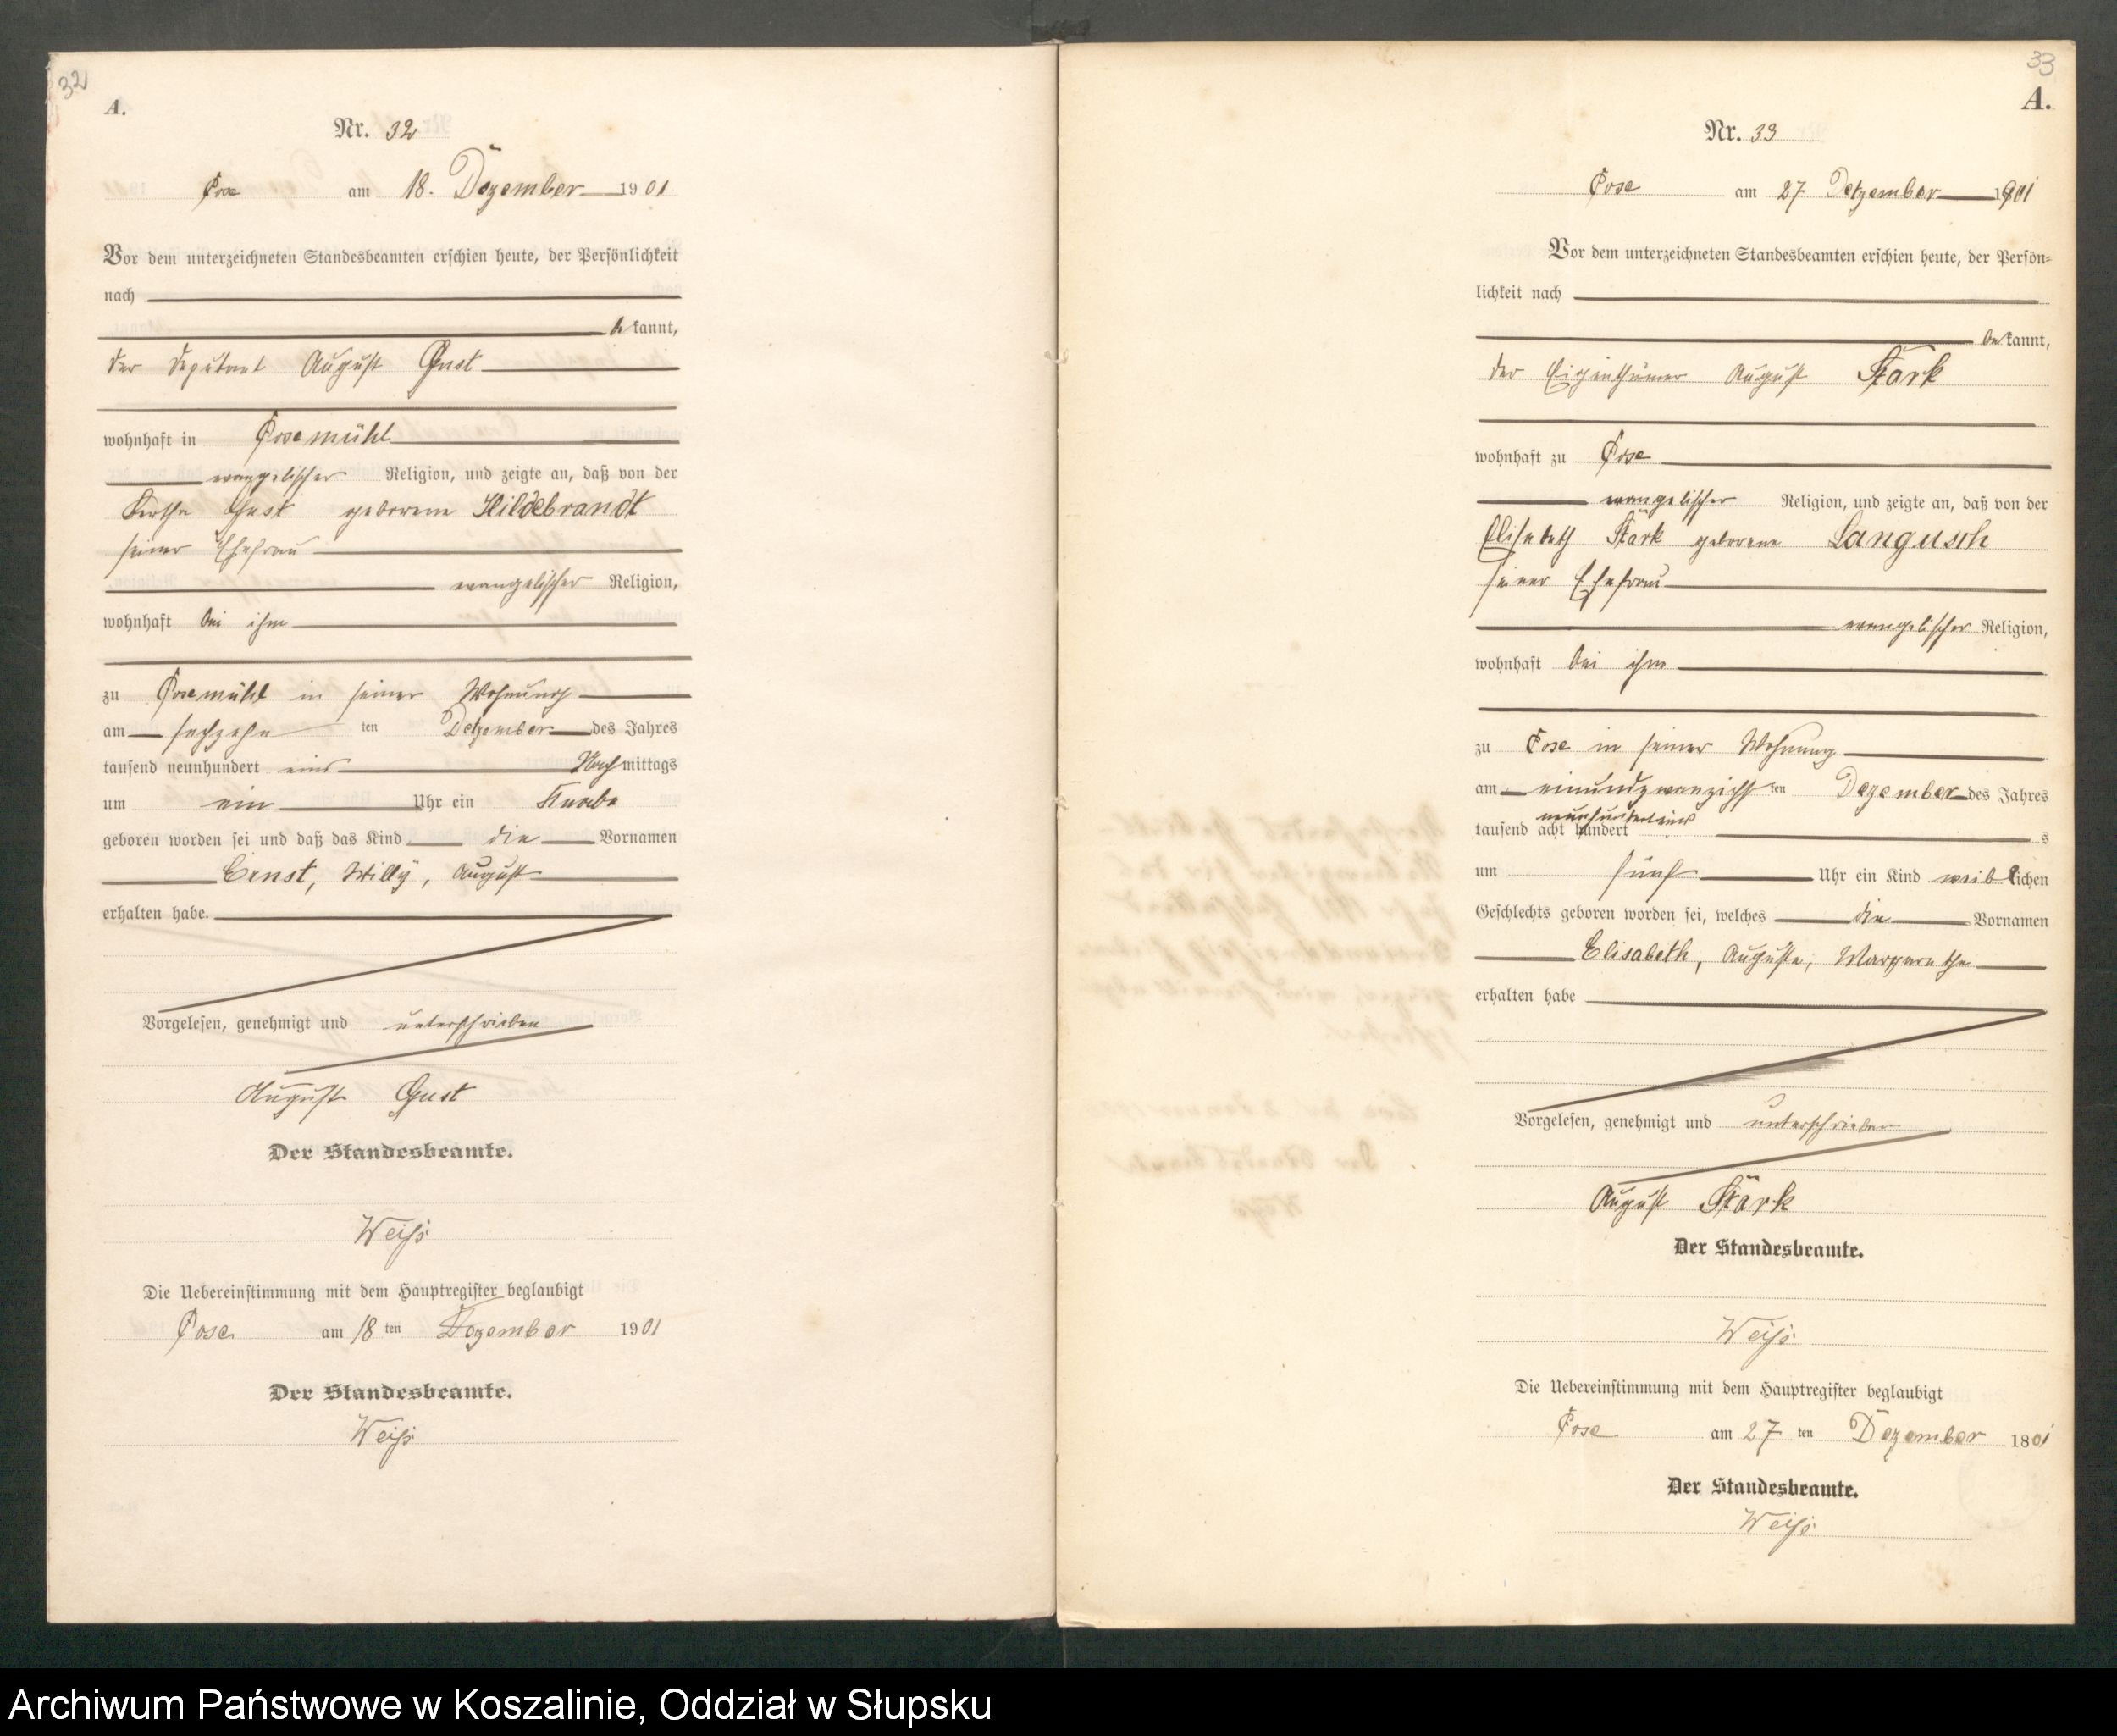 32
A.
Nr. 32
Pose am 18. Dezember 1901
Vor dem unterzeichneten Standesbeamten erschien heute, der Persönlichkeit
nach
be kannt,
der Deputant August Gust
wohnhaft in Posemühl
evangelischer Religion, und zeigte an, daß von der
Gust geborene Hildebrandt
seiner Ehefrau
evangelischer Religion,
wohnhaft bei ihm
zu Posemühl in seiner Wohnung
am sechzehn ten Dezember des Jahres
tausend neunhundert eins Nachmittags
um ein Uhr ein Knabe
geboren worden sei und daß das Kind die Vornamen
Ernst, Willy, August
erhalten habe.
Vorgelesen, genehmigt und unterschrieben
August Gust
Der Standesbeamte.
Weiß
Die Uebereinstimmung mit dem Hauptregister beglaubigt
Pose am 18 ten Dezember 1901
Der Standesbeamte.
Weiß
33
A.
Nr. 33
Pose am 27 Dezember 1901
Vor dem unterzeichneten Standesbeamten erschien heute, der Persön=
lichkeit nach
be kannt,
der Eigenthümer August Stark
wohnhaft zu Pose
evangelischer Religion, und zeigte an, daß von der
Elisabeth Stark geborene Langusch
seiner Ehefrau
evangelischer Religion,
wohnhaft bei ihm
zu Pose in seiner Wohnung
am einundzwanzigst ten Dezember des Jahres
neunhunderteins
tausend acht hundert s
um fünf Uhr ein Kind weiblichen
Geschlechts geboren worden sei, welches die Vornamen
Elisabeth, Auguste, Margarethe
erhalten habe
Vorgelesen, genehmigt und unterschrieben
August Stark
Der Standesbeamte.
Weiß
Die Uebereinstimmung mit dem Hauptregister beglaubigt
Pose am 27 ten Dezember 1801
Der Standesbeamte.
Weiß
Archiwum Państwowe w Koszalinie, Oddział w Słupsku